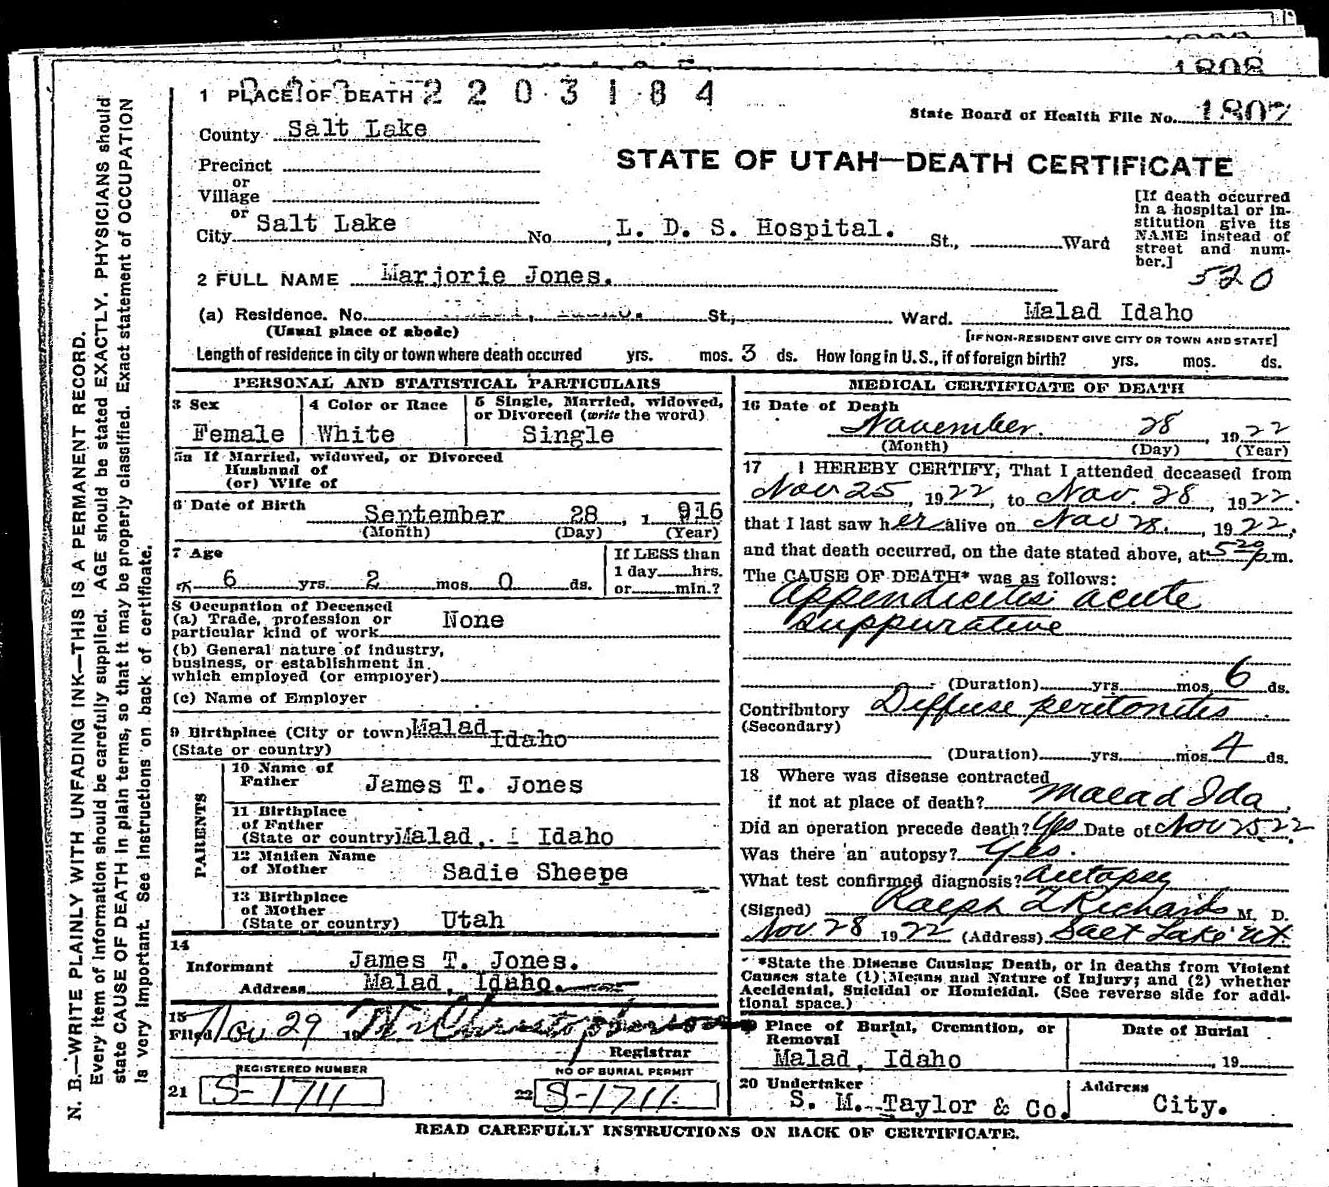 1808
1 PLACE OF DEATH 2203184
State Board of Health File No. 1807
County Salt Lake
STATE OF UTAH—DEATH CERTIFICATE
Precinct
or
Village
or
City Salt Lake No. L. D. S. Hospital. St., Ward
[If death occurred in a hospital or institution give its NAME instead of street and number.]
520
2 FULL NAME Marjorie Jones.
(a) Residence. No. St., Ward. Malad Idaho
(Usual place of abode) [IF NON-RESIDENT GIVE CITY OR TOWN AND STATE]
Length of residence in city or town where death occured yrs. mos. 3 ds. How long in U. S., if of foreign birth? yrs. mos. ds.
PERSONAL AND STATISTICAL PARTICULARS
3 Sex
Female
4 Color or Race
White
5 Single, Married, widowed,
or Divorced (write the word)
Single
5a If Married, widowed, or Divorced
Husband of
(or) Wife of
6 Date of Birth September 28, 1916
(Month) (Day) (Year)
7 Age
6 yrs. 2 mos. 0 ds.
If LESS than
1 day hrs.
or min.?
8 Occupation of Deceased
(a) Trade, profession or
particular kind of work None
(b) General nature of industry,
business, or establishment in
which employed (or employer)
(c) Name of Employer
9 Birthplace (City or town) Malad
(State or country) Idaho
PARENTS
10 Name of
Father James T. Jones
11 Birthplace
of Father
(State or country) Malad, Idaho
12 Maiden Name
of Mother Sadie Sheepe
13 Birthplace
of Mother
(State or country) Utah
14
Informant James T. Jones.
Address Malad, Idaho.
15
Filed Nov 29 19
Registrar
REGISTERED NUMBER
21 S-1711
NO OF BURIAL PERMIT
22 S-1711.
MEDICAL CERTIFICATE OF DEATH
16 Date of Death
November. 28, 1922
(Month) (Day) (Year)
17 I HEREBY CERTIFY, That I attended deceased from
Nov 25, 1922, to Nov. 28, 1922.
that I last saw her alive on Nov 28., 1922,
and that death occurred, on the date stated above, at 5 20 p.m.
The CAUSE OF DEATH* was as follows:
Appendicitis acute
suppurative
(Duration) yrs. mos. 6 ds.
Contributory Diffuse peritonitis.
(Secondary)
(Duration) yrs. mos. 4 ds.
18 Where was disease contracted
if not at place of death? Malad Ida.
Did an operation precede death? Yes Date of Nov 25 22
Was there an autopsy? Yes.
What test confirmed diagnosis? Autopsy
(Signed) Ralph T Richards M. D.
Nov. 28 1922 (Address) Salt Lake Ut.
*State the Disease Causing Death, or in deaths from Violent
Causes state (1) Means and Nature of Injury; and (2) whether
Accidental, Suicidal or Homicidal. (See reverse side for additional space.)
Place of Burial, Cremation, or
Removal
Malad, Idaho
Date of Burial
, 19
20 Undertaker
S. M. Taylor & Co.
Address
City.
READ CAREFULLY INSTRUCTIONS ON BACK OF CERTIFICATE.
N. B.—WRITE PLAINLY WITH UNFADING INK—THIS IS A PERMANENT RECORD.
Every item of information should be carefully supplied. AGE should be stated EXACTLY. PHYSICIANS should
state CAUSE OF DEATH in plain terms, so that it may be properly classified. Exact statement of OCCUPATION
is very important. See instructions on back of certificate.